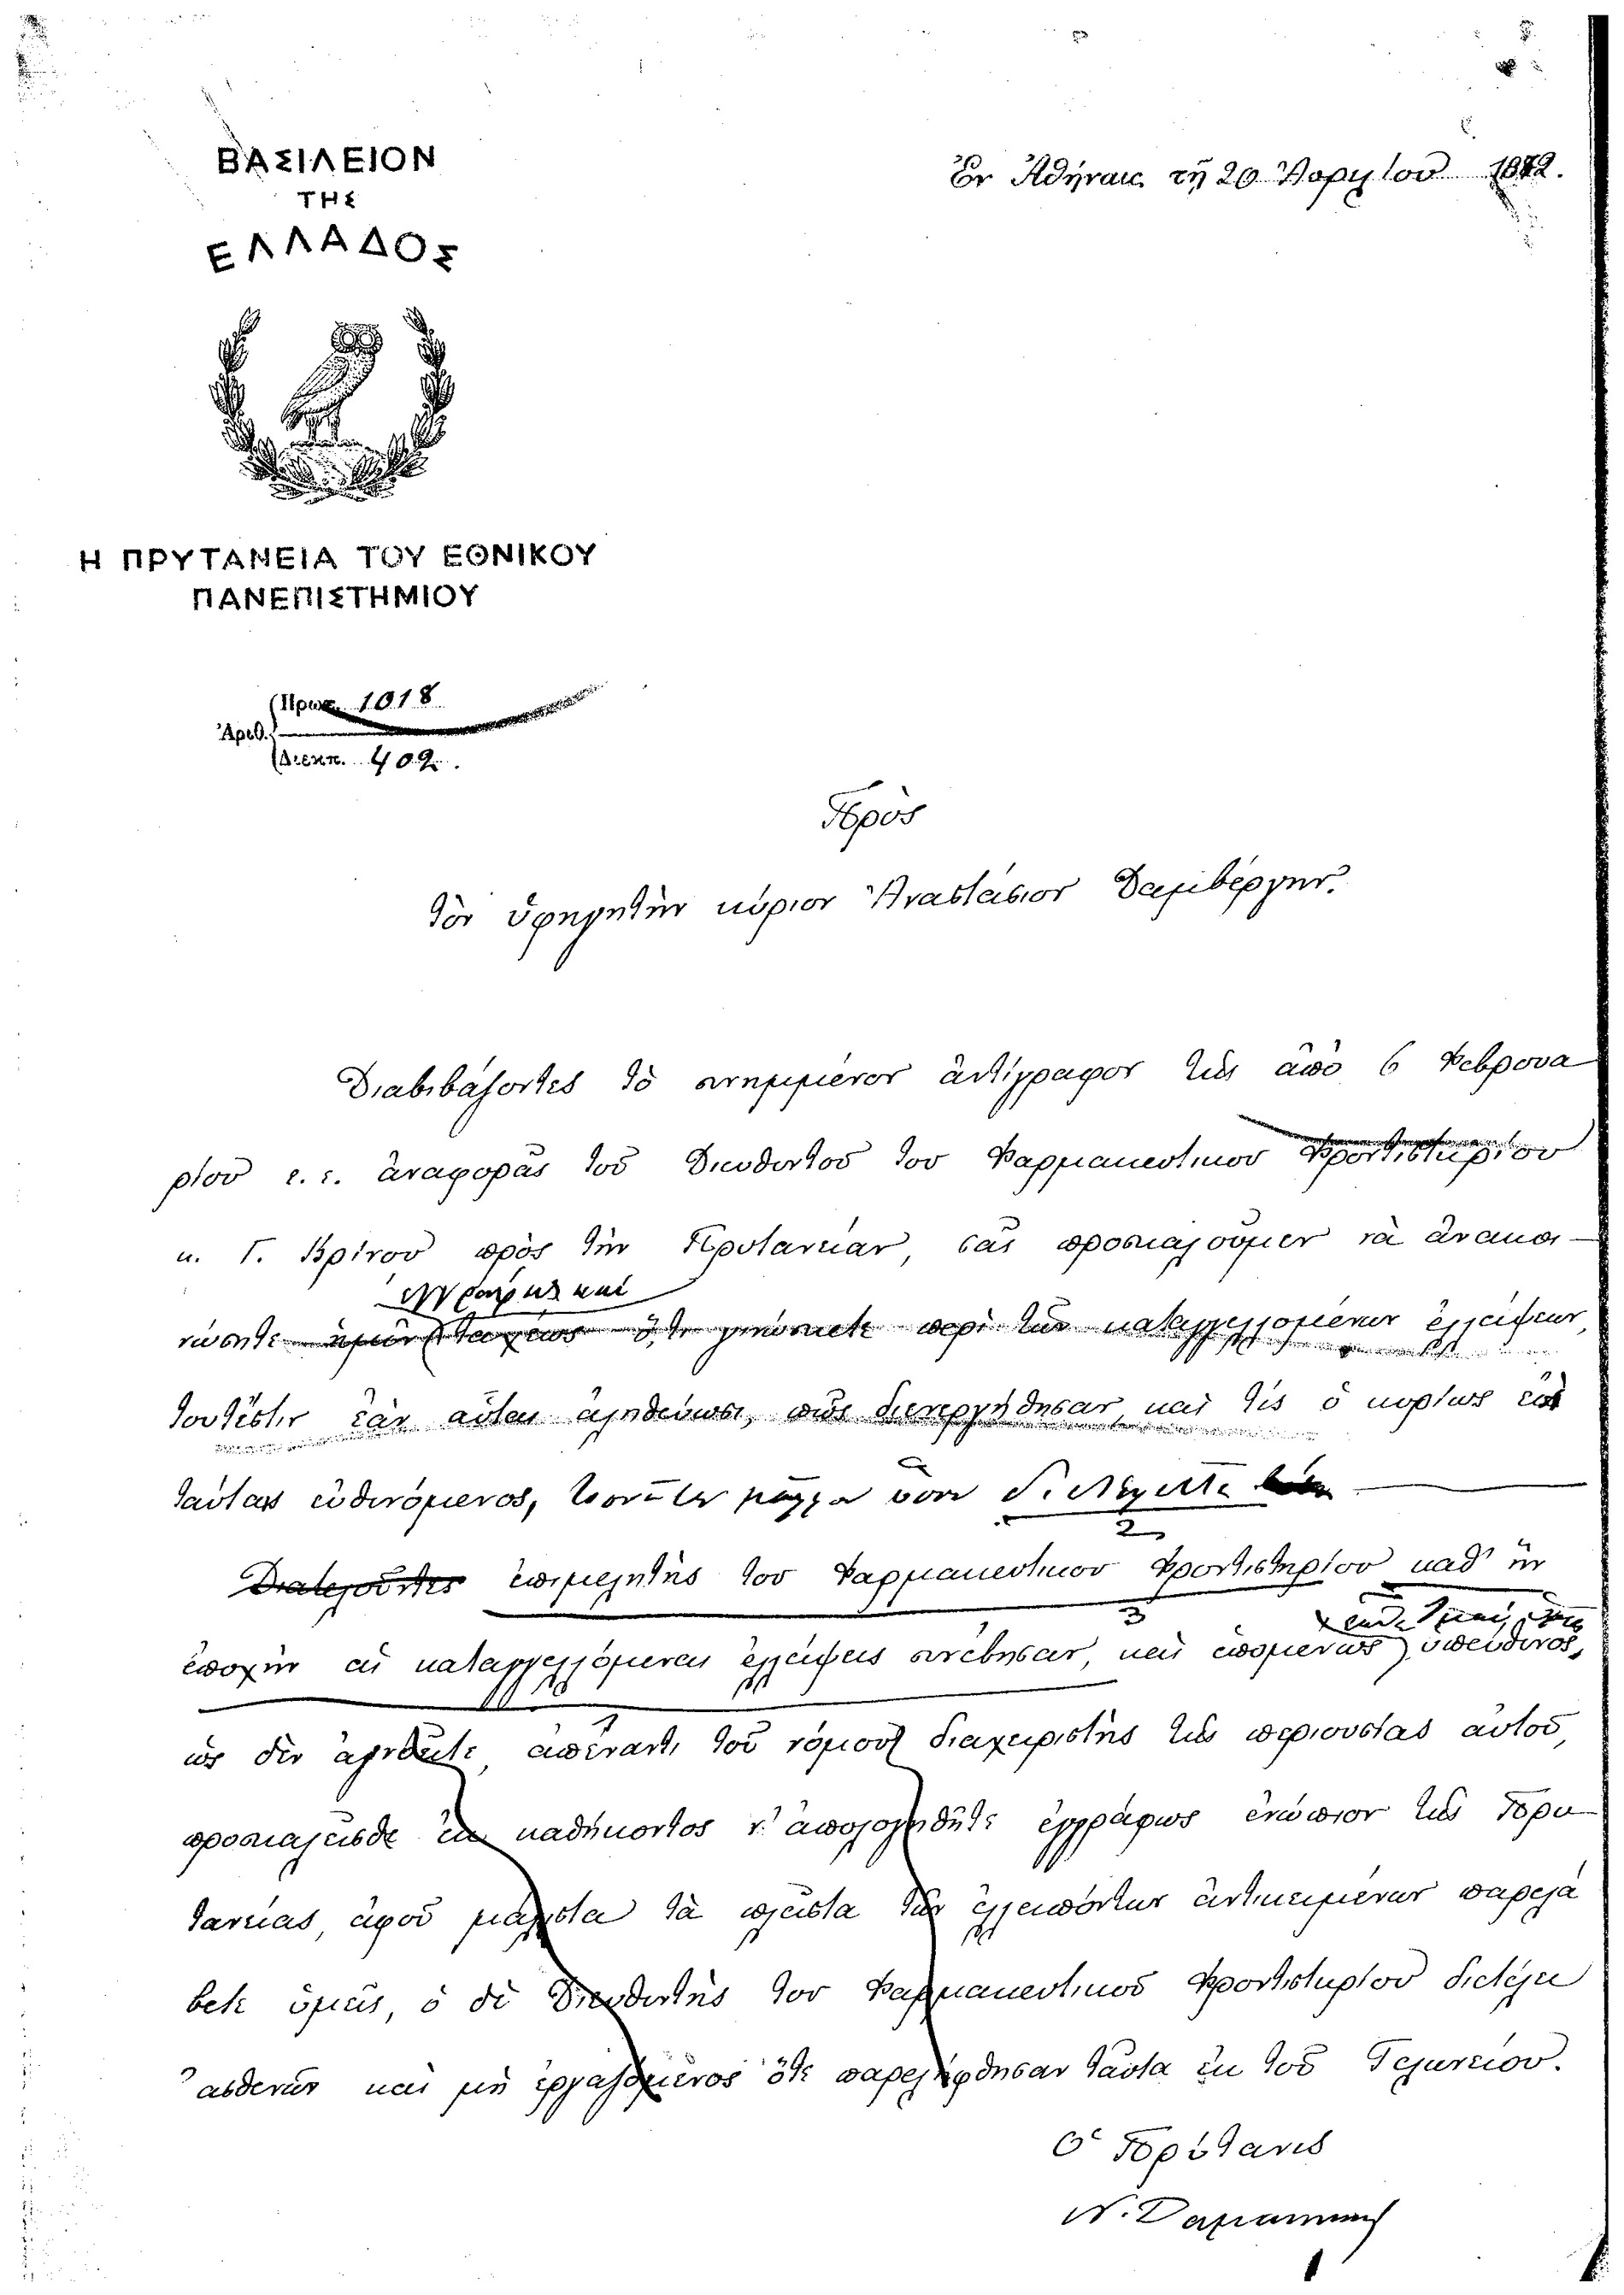 ΒΑΣΙΛΕΙΟΝ
ΤΗΣ
ΕΛΛΑΔΟΣ
Ἐν Ἀθήναις τῇ 20 Ἀπριλίου
Η ΠΡΥΤΑΝΕΙΑ ΤΟΥ ΕΘΝΙΚΟΥ
ΠΑΝΕΠΙΣΤΗΜΙΟΥ
Πρωτ. 1018
Ἀριθ.
Διεκπ. 402.
Πρὸς
τὸν ὑφηγητὴν κύριον Ἀναστάσιον Δαμβέργην.
Διαβιβάζοντες τὸ συνημμένον ἀντίγραφον τῆς ἀπὸ 6 Φεβρουα
ρίου ἐ. ἔ. ἀναφορᾶς τοῦ Διευθυντοῦ του Φαρμακευτικου Φροντιστηρίου
κ. Γ. Κρίνου πρὸς τὴν Πρυτανείαν, σᾶς προσκαλοῦμεν νὰ ἀνακοι-
ἐγγράφως καὶ
νώσητε ἡμῖν ταχέως ὅ,τι γινώσκετε περὶ τῶν καταγγελλομένων ἐλλείψεων,
τουτέστιν ἐὰν αὗται ἀληθεύωσι, πῶς διενεργήθησαν, καὶ τίς ὁ κυρίως διὰ
ταύτας εὐθυνόμενος, τοσοῦτον μᾶλλον ὅσον διετελεῖτε
Διατελοῦντες ἐπιμελητὴς του Φαρμακευτικου Φροντιστηρίου καθ' ἣν
ἐποχὴν αἱ καταγγελλόμεναι ἐλλείψεις συνέβησαν, καὶ ἑπομένως ὑπεύθυνος,
ὡς δὲν ἀγνοεῖτε, ἀπέναντι τοῦ νόμου διαχειριστὴς τῆς περιουσίας αὐτοῦ,
προσκαλεῖσθε ἐκ καθήκοντος ν' ἀπολογηθῆτε ἐγγράφως ἐνώπιον τῆς Πρυ
τανείας, ἀφοῦ μάλιστα τὰ πλεῖστα τῶν ἐλλειπόντων ἀντικειμένων παρελά
βετε ὑμεῖς, ὁ δὲ Διευθυντὴς του Φαρμακευτικοῦ Φροντιστηρίου διετέλει
ἀσθενῶν καὶ μὴ ἐργαζόμενος ὅτε παρελήφθησαν ταῦτα ἐκ τοῦ Τελωνείου.
Ὁ Πρύτανις
Ν. Δαμασκηνός